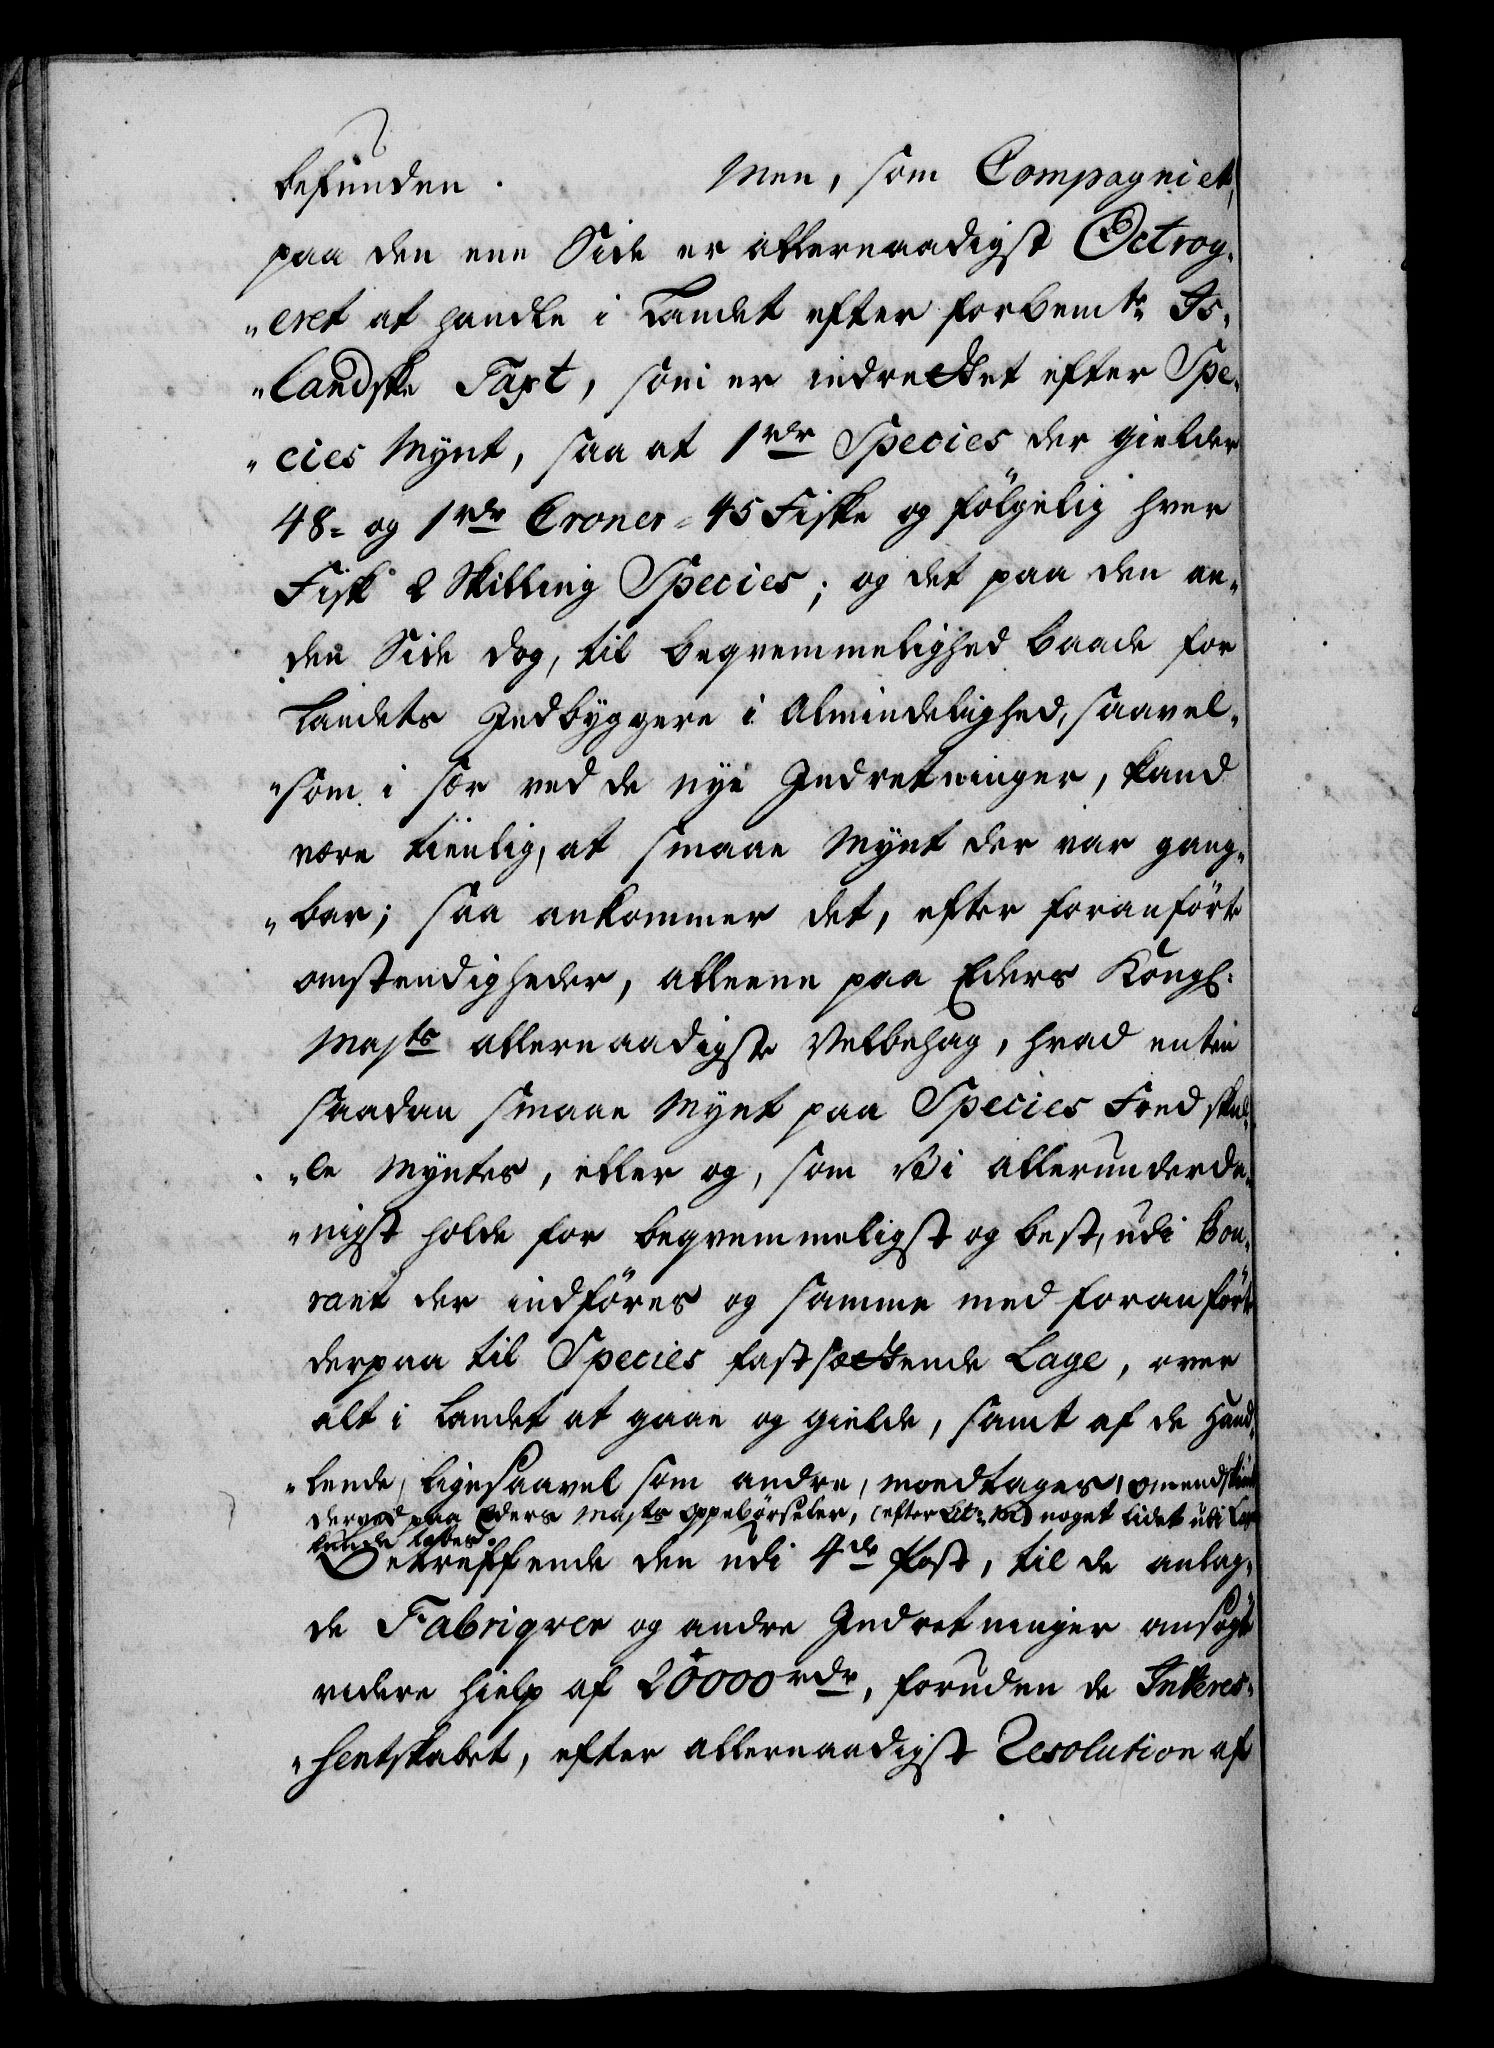 befunden. Men, som Compagniet,
paa den ene Side er allernaadigst Octroy-
"eret at handle i Landet efter forbemte Is-
"landske Taxt, som er indrettet efter Spe-
"cies Mynt, saa at 1 rdr Species der gielder
48- og 1 rdr Croner = 45 Fiske og følgelig hver
Fisk 2 Skilling Species; og det paa den an-
den Side dog, til beqvemmelighed baade for
Landets Indbyggere i Almindelighed, saavel-
"som i sær ved de nye Indretninger, kand
være tienlig, at smaae Mynt der var gang-
"bar; saa ankommer det, efter foranførte
omstendigheder, alleene paa Eders Kongl:
Majts allernaadigste Velbehag, hvad enten
saadan smaae Mynt paa Species Foed skul-
"le Myntes, eller og, som Vi allerunderda-
"nigst holde for beqvemmeligst og best, udi Cou-
rant der indføres og samme med foranførte
derpaa til Species fastsættende Lage, over
alt i Landet at gaae og gielde, samt af de Hand-
"lende, ligesaavel som andre, moedtages, omendskiønt
derved paa Eders Majts Oppebørseler, (efter Litr: noget lidet udi
kunde tabes.
Betreffende den udi 4de Post, til de anlag-
de Fabriqver og andre Indretninger ansøgte
videre Hielp af 20000 rdr, foruden de Interes-
"sentskabet, efter allernaadigst Resolution af